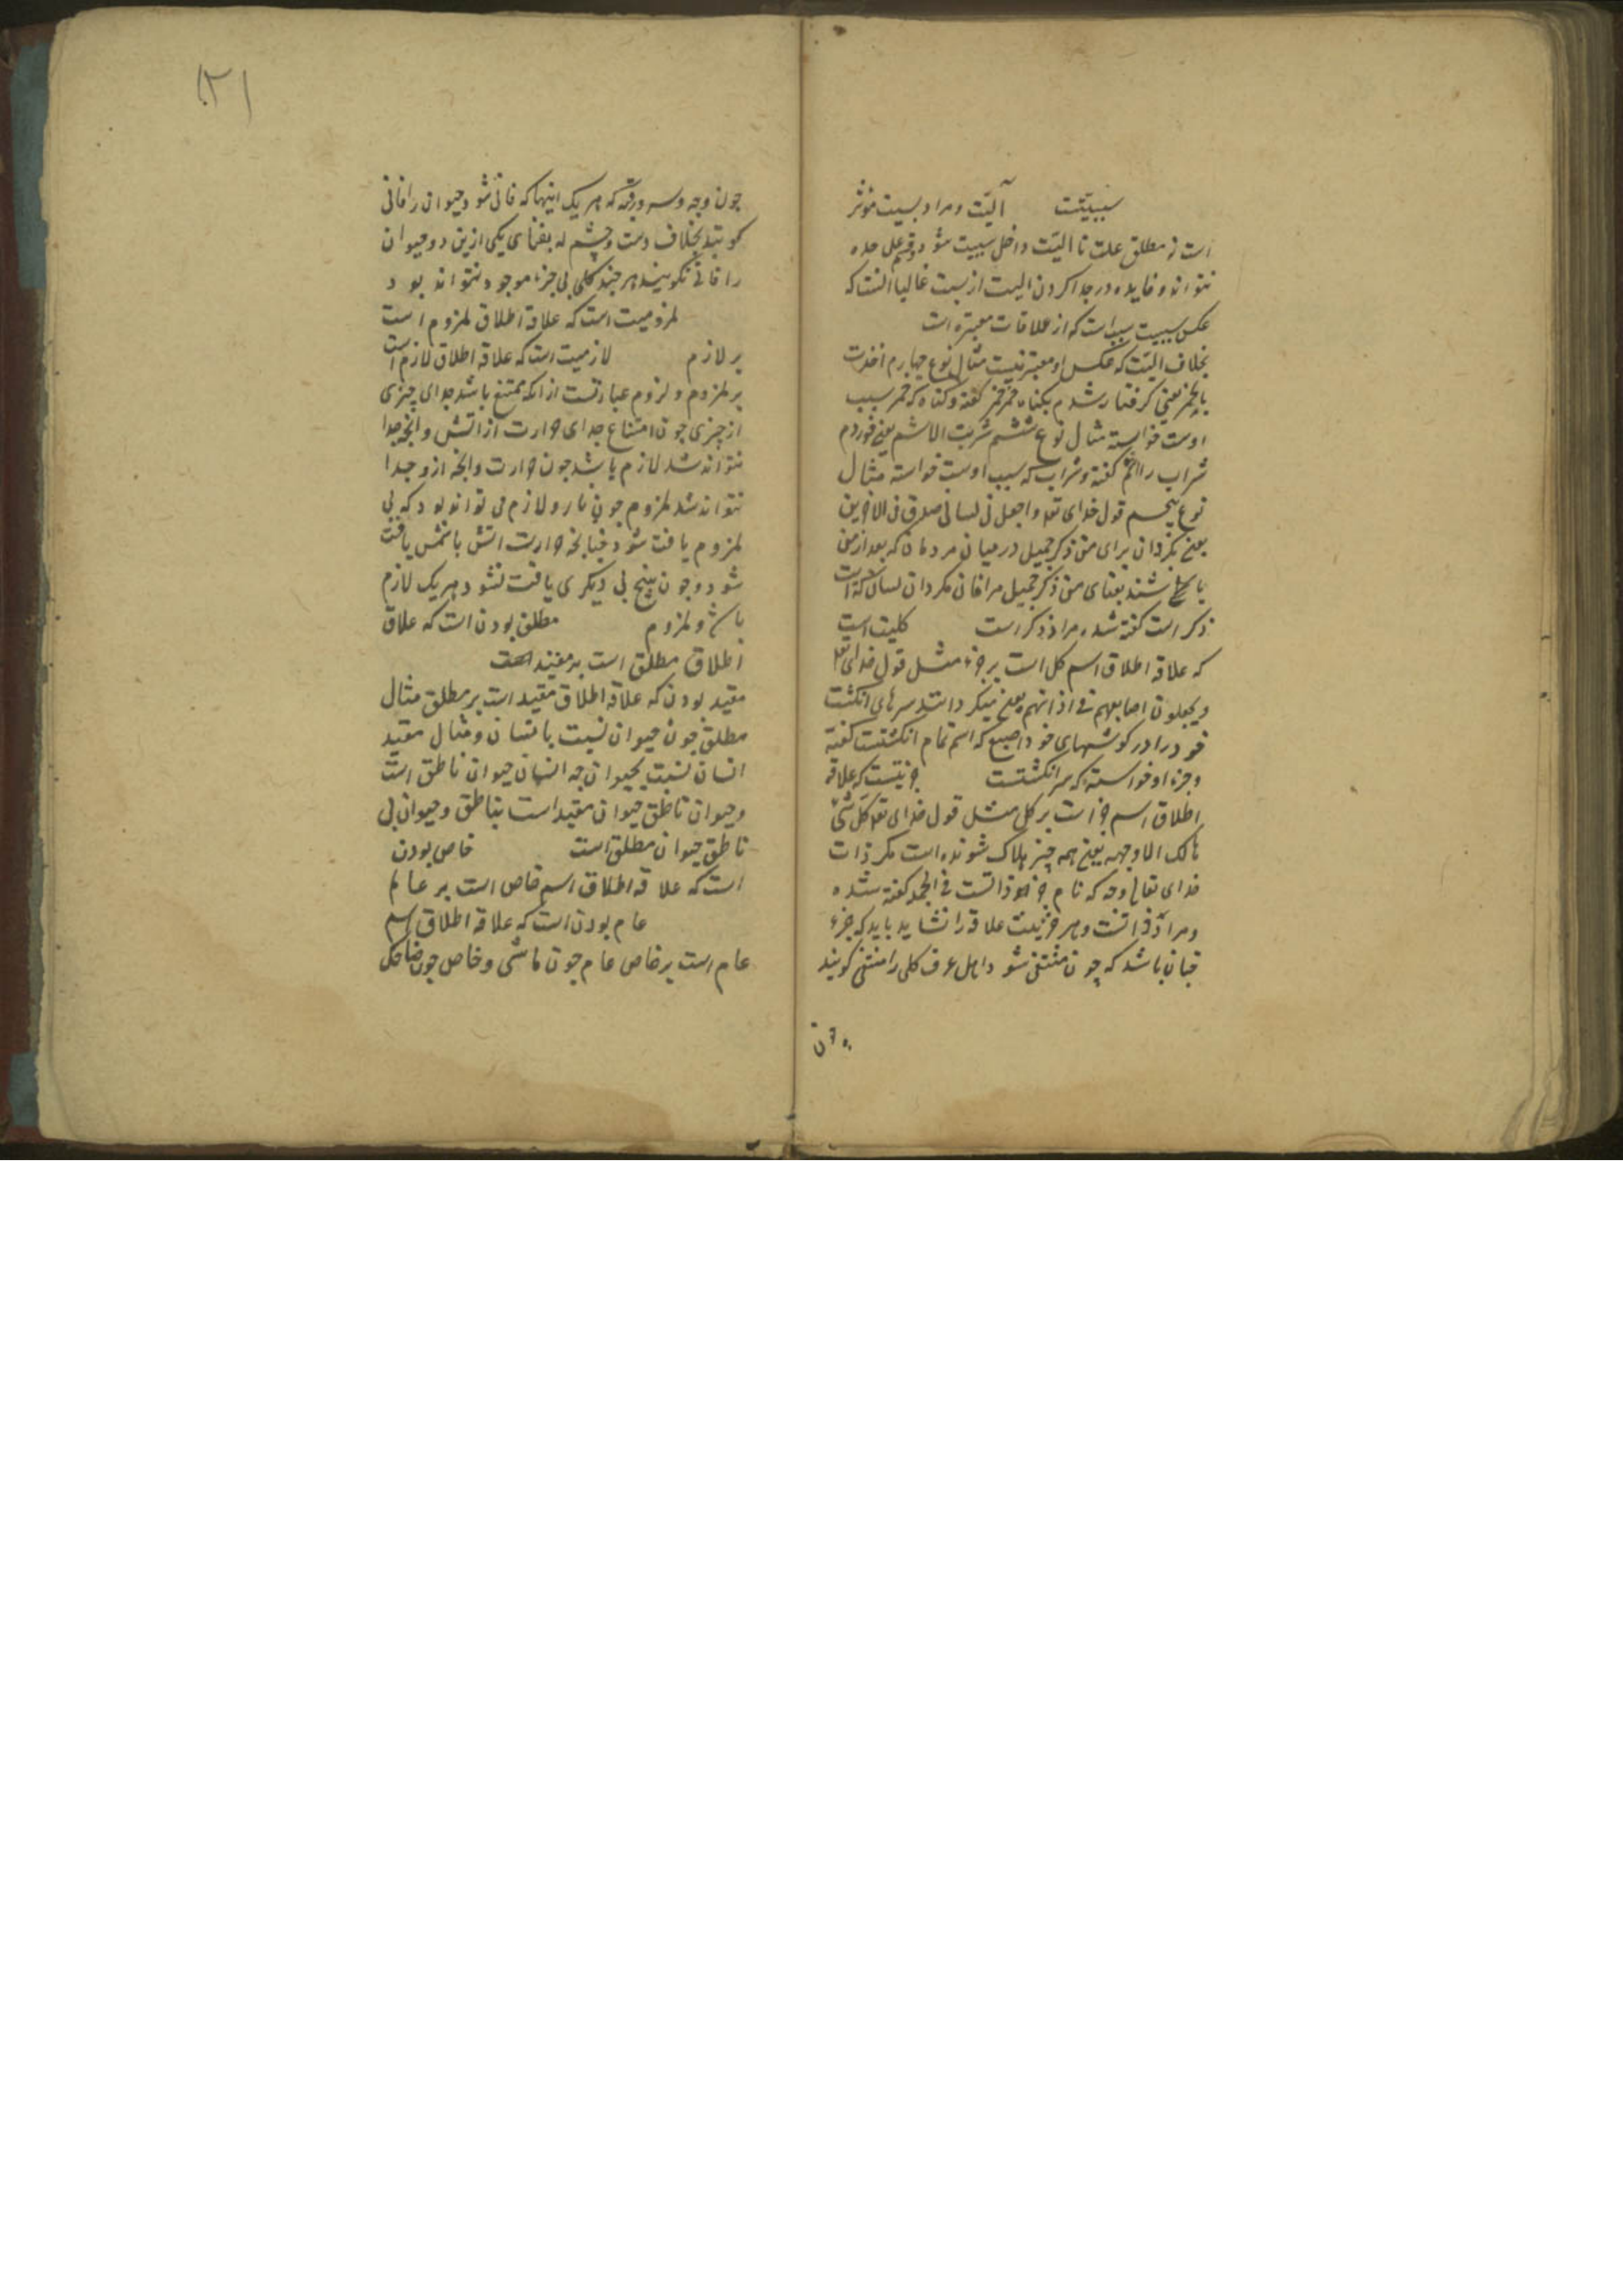 سببیّتست آلیّت و مراد بسببیت موثر
است نه مطلق علت تا الیّت داخل سببیت شود و قسم علی حده
نتواند و فایده در جدا کردن الیت از سببت غالبا انست که
عکس سببیت سبب است که از علاقات معتبره است
بخلاف الیّت که عکس او معتبر نیست مثال نوع چهارم اخذت
بالخمر یعنی کرفتار شدم بکناه خمر خمر کفته و کناه که خمر سبب
اوست خواسته مثال نوع ششم شربت الاشم یعنی خوردم
شراب را اثم کفته و شراب که سبب اوست خواسته مثال
نوع پنجم قول خدای تعه و اجعل لی لسانی صدق فی الاخرین
یعنی بکردان برای من ذکر جمیل در میان مردمان که بعد از من
باشند بفنای من ذکر جمیل مرا فانی مکردان لسان که آلت
ذکر است کفته شده مراد ذکر است کلیت است
که علاقه اطلاق اسم کل است بر جزء مثل قول خدای تعه
و یجعلون اصابعهم فی اذانهم یعنی میکردانند سرهای انکشت
خود را در کوشهای خود اصبع که اسم تمام انکشتست کفته
و جزء او خواسته که سر انکشتست جزئیتست که علاقه
اطلاق اسم جزء است بر کل مثل قول خدای تعه کل شئ
هالک الا وجهه یعنی همه چیز هلاک شونده است مکر ذات
خدای تعالی وجه که نام جزء ذاتست فی الجمله کفته شده
و مراد ذاتست و هر جزئیت علاقه را نشاید باید که جزء
چنان باشد که چون منتفی شود اهل عرف کلی را منتفی کویند
چون
۱۲۱
جون وجه و سر و رقبه که هر یک اینها که فانی شود حیوان را فانی
کویند بخلاف دست و چشم که بفنای یکی ازین دو حیوان
را فانی نکویند هر چند کلی بی جزء موجود نتواند بود
ملزومیت است که علاقه اطلاق ملزوم است
بر لازم لازمیت است که علاقه اطلاق لازم است
بر ملزوم و لزوم عبارتست از انکه ممتنع باشد جدای چیزی
از چیزی چون امتناع جدای حرارت از اتش و انچه جدا
نتواند شد لازم باشد جون حرارت و انچه ازو جدا
نتواند شد ملزوم جون نار و لازم می تواند بود که بی
ملزوم یافت شود چنانچه حرارت اتش با شمس یافت
شود و جون هیچ بی دیکری یافت نشود هر یک لازم
باشد و ملزوم مطلق بودن است که علاقه
اطلاق مطلق است بر مقید
مقید بودن که علاقه اطلاق مقید است بر مطلق مثال
مطلق جون حیوان نسبت بانسان و مثال مقید
انسان نسبت بحیوان چه انسان حیوان ناطق است
و حیوان ناطق حیوان مقید است بناطق و حیوان بی
ناطق حیوان مطلق است خاص بودن
است که علاقه اطلاق اسم خاص است بر عام
عام بودن است که علاقه اطلاق اسم
عام است بر خاص عام جون ماشی و خاص جون ضاحک